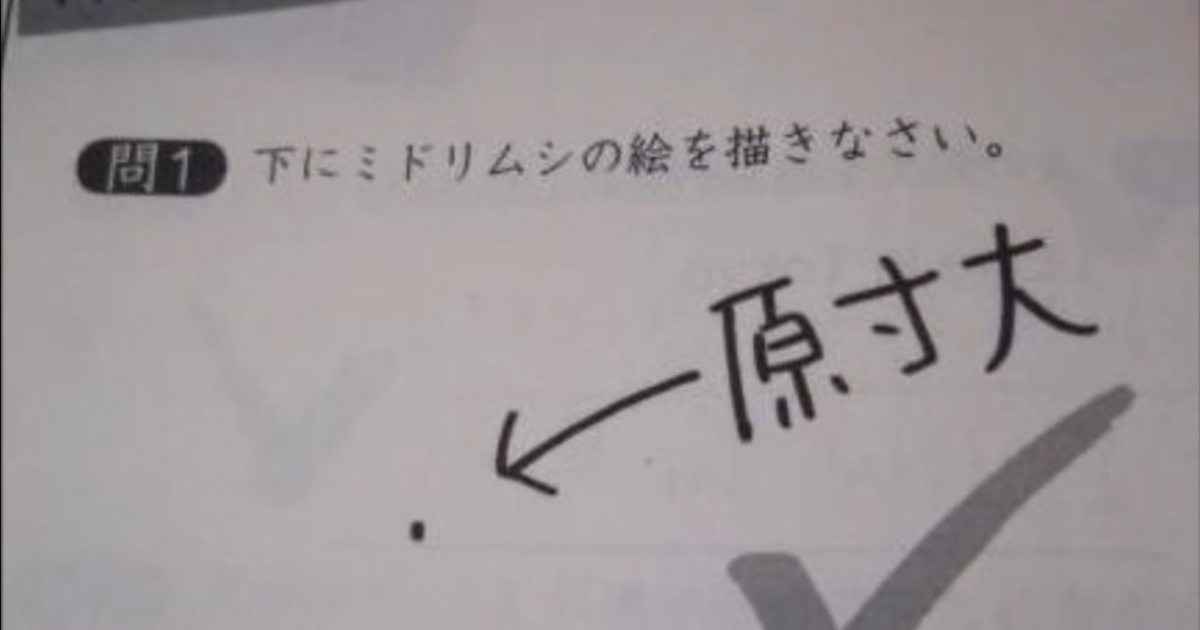 問1 下にミドリムシの絵を描きなさい。
原寸大